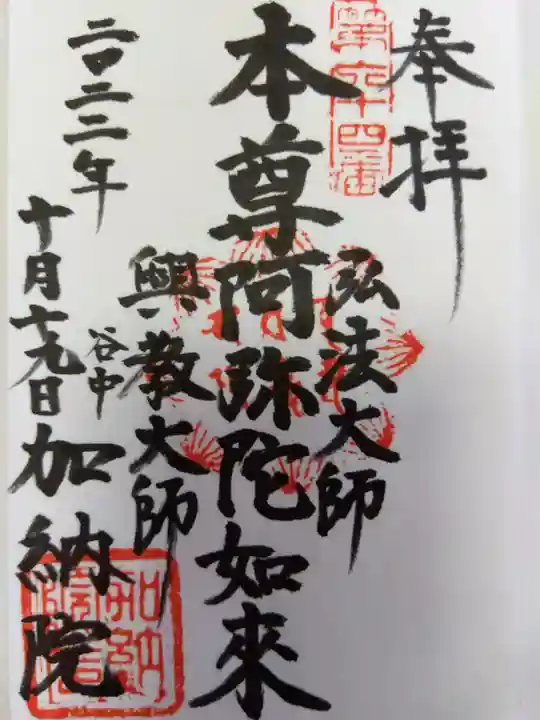 奉拝
第六十四番
弘法大師
本尊阿弥陀如來
興教大師
谷中
加納院
二〇二二年
十月十九日
加納院